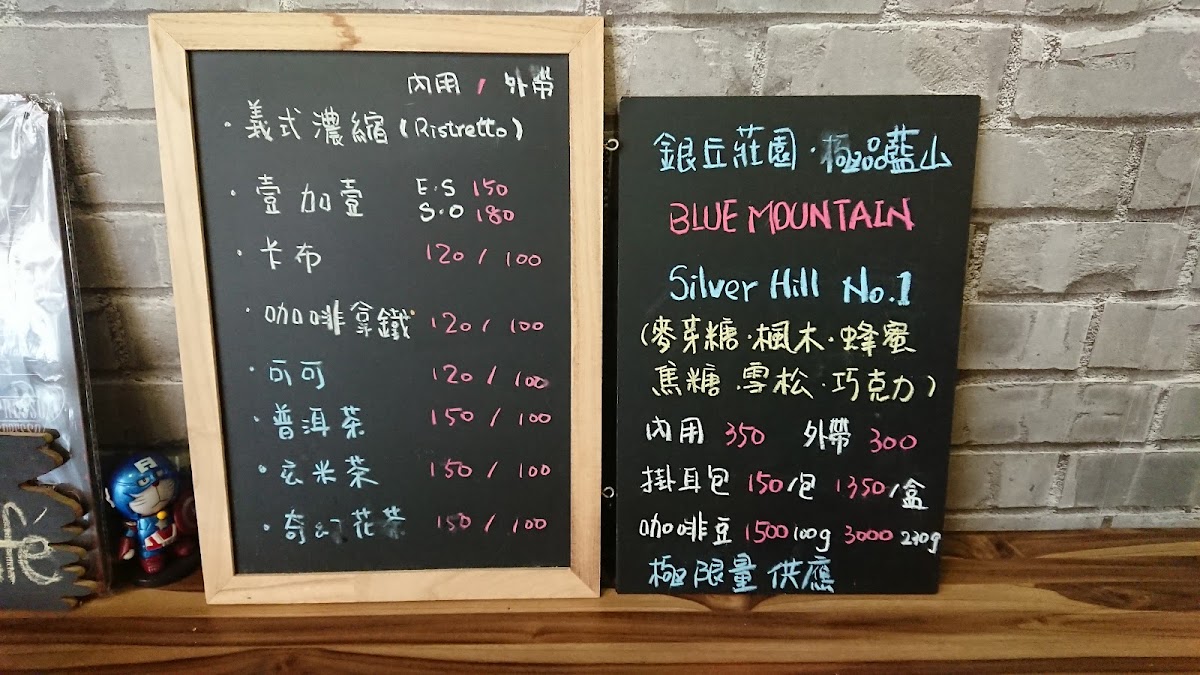 內用 / 外帶
·義式濃縮 (Ristretto)
·壹加壹 E.S 150
S.O 180
·卡布 120 / 100
·咖啡拿鐵 120 / 100
·可可 120 / 100
·普洱茶 150 / 100
·玄米茶 150 / 100
·奇幻花茶 150 / 100
銀丘莊園·極品藍山
BLUE MOUNTAIN
Silver Hill No.1
(麥芽糖·楓木·蜂蜜
焦糖·雪松·巧克力)
內用 350 外帶 300
掛耳包 150/包 1350/盒
咖啡豆 1500 100g 3000 230g
極限量供應
fé